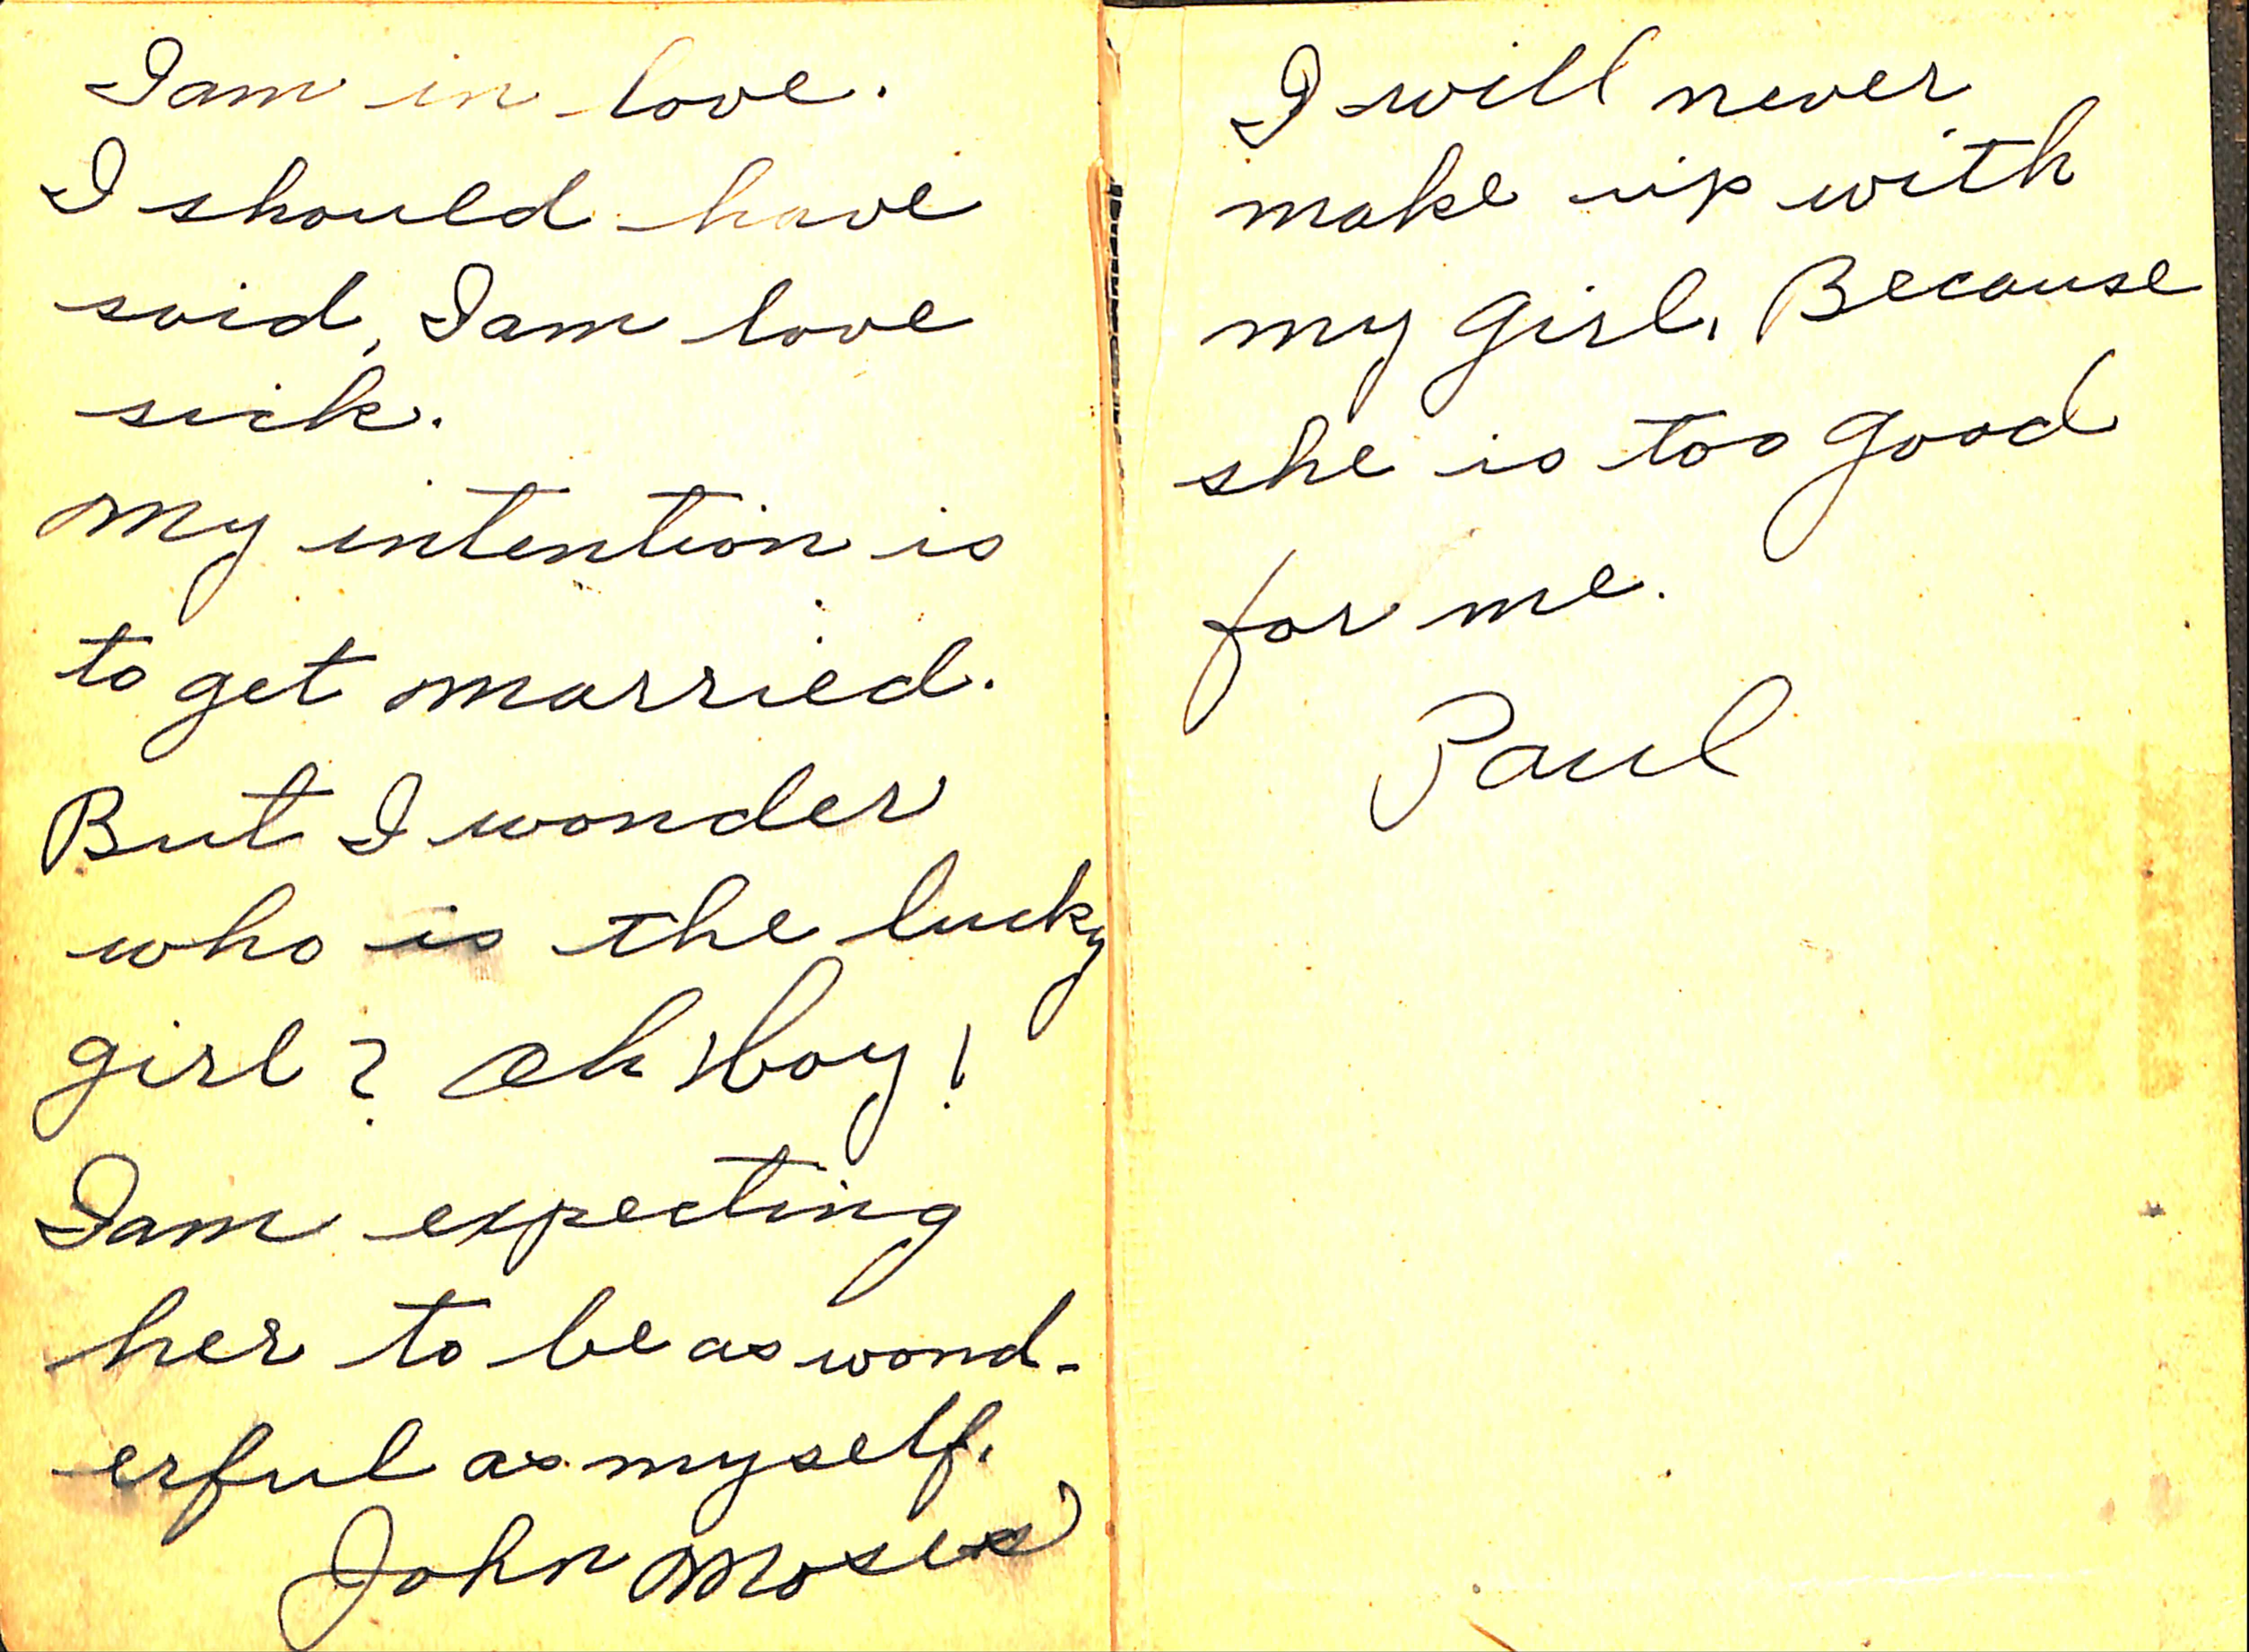 I am in love.
I should have
said, I am love
sick.
My intention is
to get married.
But I wonder
who is the lucky
girl? Oh Boy!
I am expecting
her to be as wond-
erful as myself.
John Moses
I will never
make up with
my girl. Because
she is too good
for me.
Paul